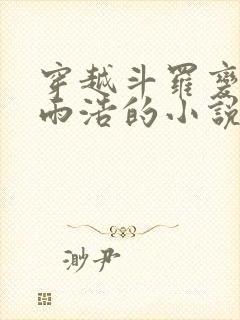 穿越斗羅變
雨浩的小說
渺尹